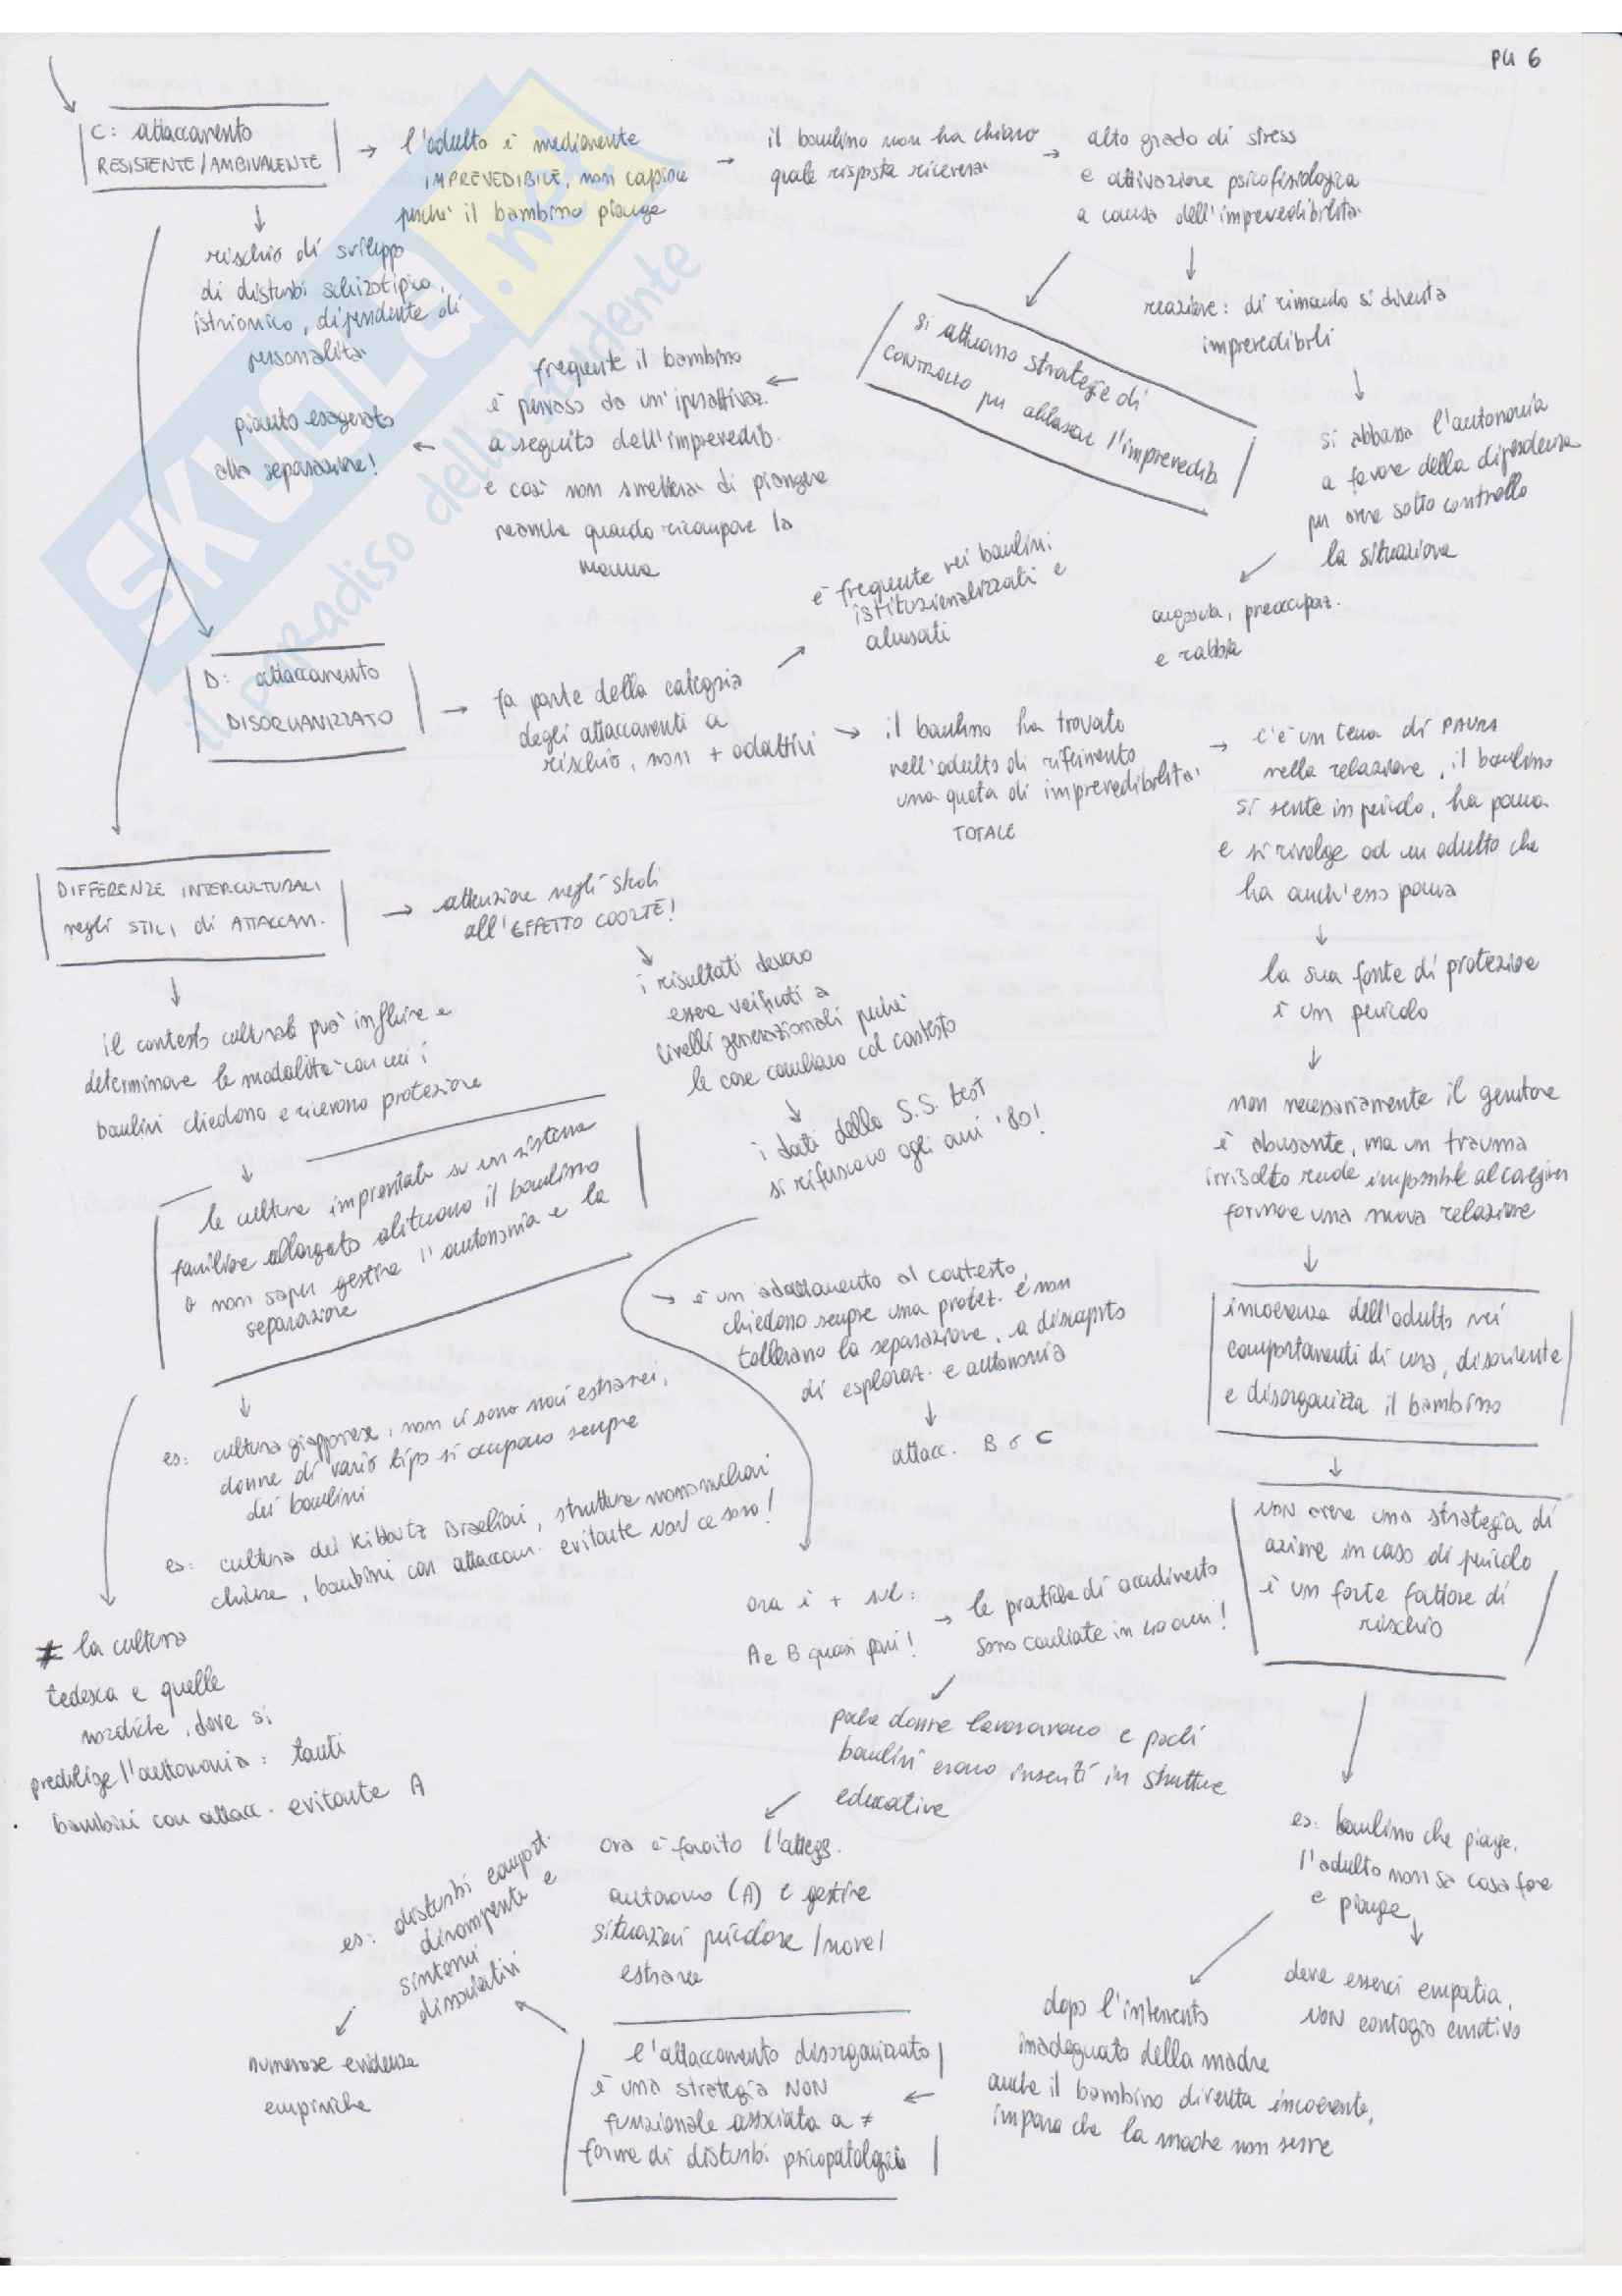 PU 6
C: attaccamento
RESISTENTE/AMBIVALENTE
l'adulto è mediamente
IMPREVEDIBILE, non capisce
perché il bambino piange
il bambino non ha chiaro
quale risposta riceverà
alto grado di stress
e attivazione psicofisiologica
a causa dell'imprevedibilità
rischio di sviluppo
di disturbi schizotipico,
istrionico, dipendente di
personalità
reazione: di rimando si diventa
imprevedibili
si attuano strategie di
CONTROLLO per abbassare l'imprevedib.
frequente il bambino
è pervaso da un'iperattivaz.
a seguito dell'imprevedib.
e così non smetterà di piangere
neanche quando ricompare la
mamma
pianto esagerato
alla separazione!
si abbassa l'autonomia
a favore della dipendenza
per avere sotto controllo
la situazione
angoscia, preoccupaz.
e rabbia
D: attaccamento
DISORGANIZZATO
fa parte della categoria
degli attaccamenti a
rischio, non + adattivi
è frequente nei bambini
istituzionalizzati e
abusati
il bambino ha trovato
nell'adulto di riferimento
una quota di imprevedibilità
TOTALE
c'è un tema di PAURA
nella relazione, il bambino
si sente in pericolo, ha paura
e si rivolge ad un adulto che
ha anch'esso paura
la sua fonte di protezione
è un pericolo
non necessariamente il genitore
è abusante, ma un trauma
irrisolto rende impossibile al caregiver
formare una nuova relazione
incoerenza dell'adulto nei
comportamenti di cura, disorienta
e disorganizza il bambino
NON avere una strategia di
azione in caso di pericolo
è un forte fattore di
rischio
es: bambino che piange,
l'adulto non sa cosa fare
e piange
deve esserci empatia,
NON contagio emotivo
dopo l'intervento
inadeguato della madre
anche il bambino diventa incoerente,
impara che la madre non serve
l'attaccamento disorganizzato
è una strategia NON
funzionale associata a ≠
forme di disturbi psicopatologici
es: disturbi comport.
dirompente e
sintomi
dissociativi
numerose evidenze
empiriche
DIFFERENZE INTERCULTURALI
negli STILI di ATTACCAM.
attenzione negli studi
all'EFFETTO COORTE!
i risultati devono
essere verificati a
livelli generazionali perché
le cose cambiano col contesto
i dati della S.S. test
si riferivano agli anni '80!
il contesto culturale può influire e
determinare le modalità con cui i
bambini chiedono e ricevono protezione
le culture improntate su un sistema
familiare allargato abituano il bambino
a non saper gestire l'autonomia e la
separazione
è un adattamento al contesto,
chiedono sempre una protez. e non
tollerano la separazione, a discapito
di esploraz. e autonomia
attacc. B o C
es: cultura giapponese, non ci sono mai estranei,
donne di vario tipo si occupano sempre
dei bambini
es: cultura dei Kibbutz israeliani, strutture mononucleari
chiuse, bambini con attaccam. evitante NON ce sono!
≠ la cultura
tedesca e quelle
nordiche, dove si
predilige l'autonomia: tanti
bambini con attacc. evitante A
ora i + sul:
A e B quasi pari!
le pratiche di accudimento
sono cambiate in 40 anni!
poche donne lavoravano e pochi
bambini erano inseriti in strutture
educative
ora è favorito l'atteg.
autonomo (A) e gestire
situazioni pericolose/nove/
estranee
SKUOLA.net
il paradiso dello studente